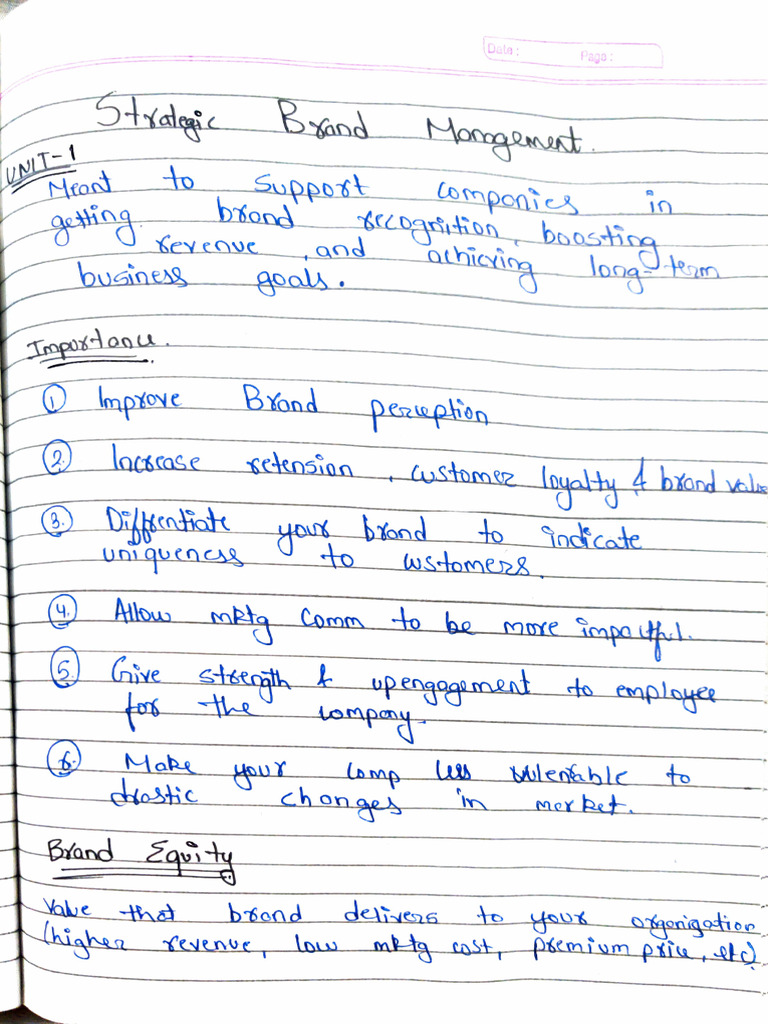 Date: Page:
Strategic Brand Management.
UNIT-1
Meant to support companies in
getting brand recognition, boosting
revenue, and achieving long-term
business goals.
Importance.
① Improve Brand perception
② Increase retension, customer loyalty & brand value
③ Differentiate your brand to indicate
uniqueness to customers.
④ Allow mktg comm to be more impactful.
⑤ Give strength & upengagement to employee
for the company.
⑥ Make your comp less vulenrable to
drastic changes in market.
Brand Equity
Value that brand delivers to your organigation
(higher revenue, low mktg cost, premium price, etc)